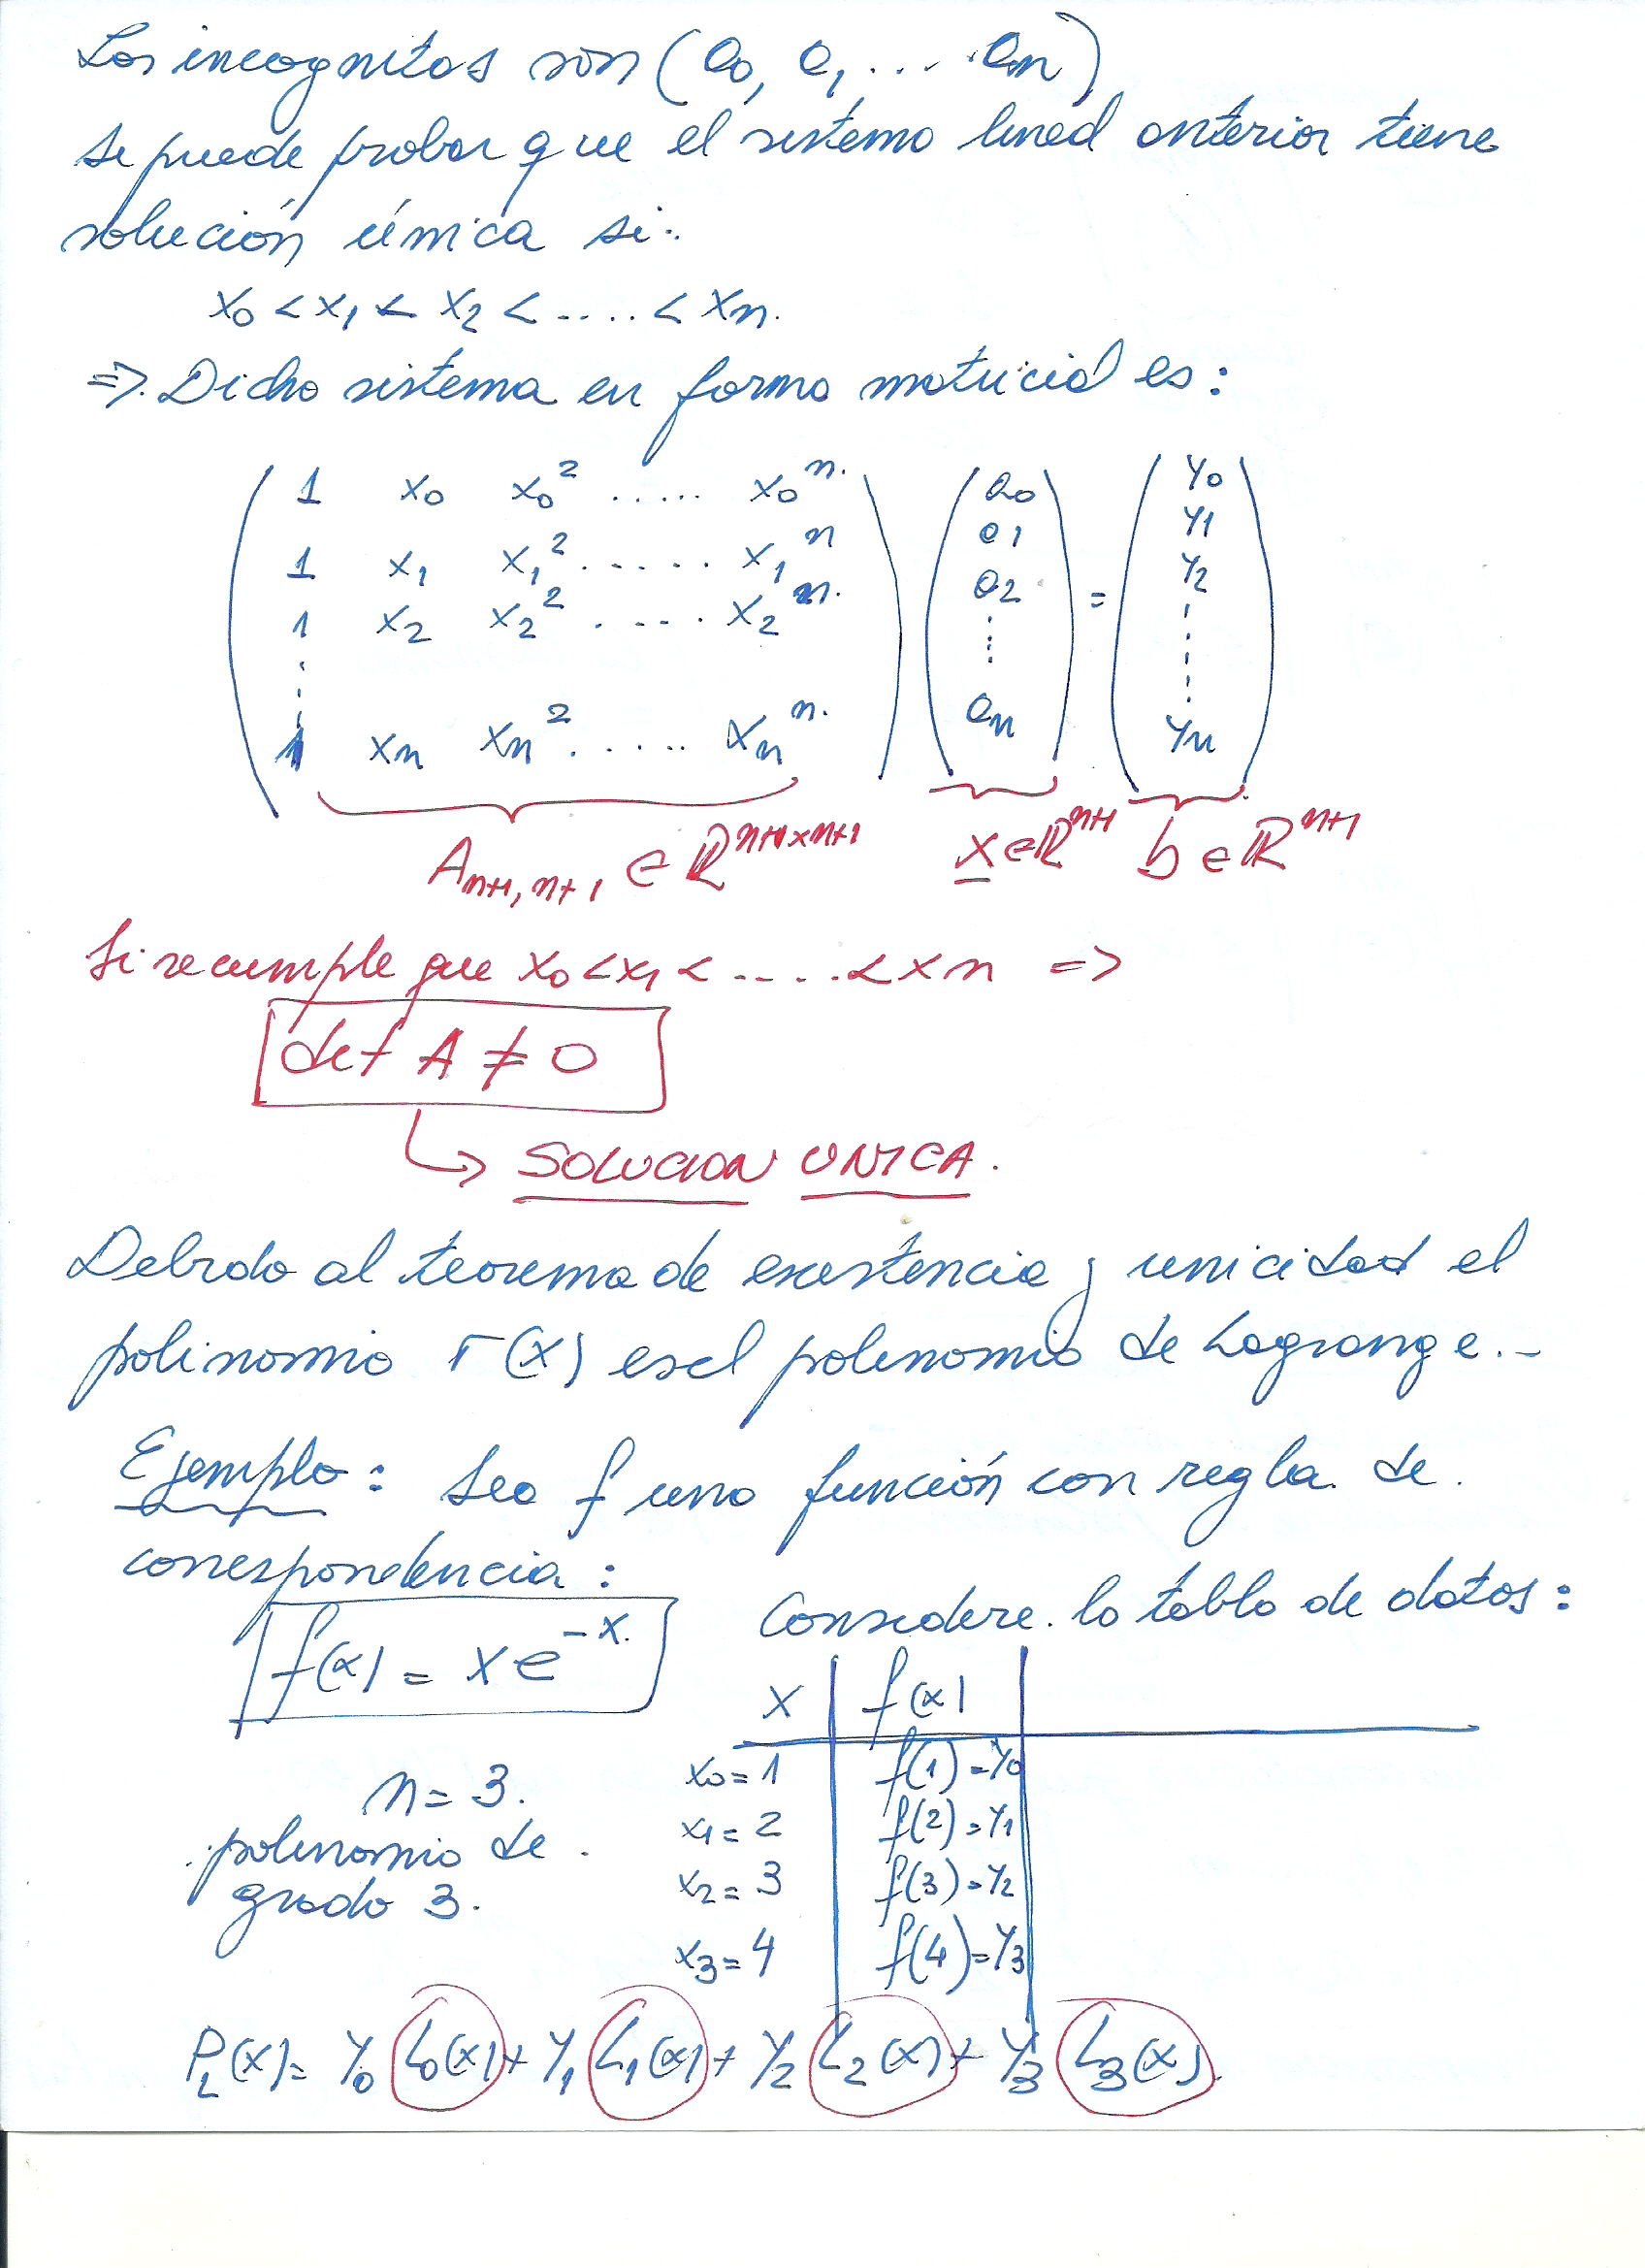 Las incognitas son (a0, a1, ... an)
se puede probar que el sistema lineal anterior tiene
solución única si:
x0 < x1 < x2 < .... < xn.
=> Dicho sistema en forma matricial es:
1 x0 x0^2 ..... x0^n. a0 y0
1 x1 x1^2 ...... x1^n a1 y1
1 x2 x2^2 ..... x2^n. a2 = y2
1 xn xn^2 ...... xn^n. an yn
A n+1, n+1 ∈ R^n+1×n+1 x ∈ R^n+1 b ∈ R^n+1
Si se cumple que x0 < x1 < ..... < xn =>
det A ≠ 0
↳ SOLUCION UNICA.
Debido al teorema de existencia y unicidad el
polinomio r(x) es el polinomio de Lagrange.-
Ejemplo: Sea f una función con regla de
correspondencia:
f(x) = x e^-x.
Considere la tabla de datos:
x f(x)
x0 = 1 f(1) = y0
n = 3.
x1 = 2 f(2) = y1
polinomio de
x2 = 3 f(3) = y2
grado 3.
x3 = 4 f(4) = y3
PL(x) = y0 L0(x) + y1 L1(x) + y2 L2(x) + y3 L3(x).